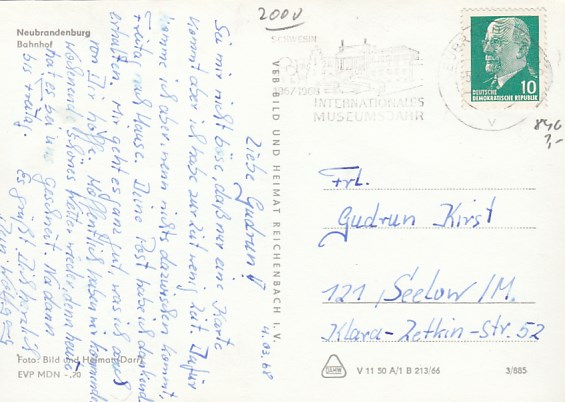 Neubrandenburg
Bahnhof
Liebe Gudrun!
Sei mir nicht böse, daß nur eine Karte
kommt aber ich habe zur Zeit wenig Zeit. Dafür
komme ich aber, wenn nichts dazwischen kommt,
Freitag nach Hause. Deine Post habe ich dankend
erhalten. Mir geht es ganz gut, was ich auch
von Dir hoffe. Hoffentlich haben wir kommendes
Wochenende schönes Wetter, denn heute
hat es bei uns geschneit. Na dann
bis Freitag.
Es grüßt Dich herzlich
Dein
11.03.68
Foto: Bild und Heimat-Darr
EVP MDN -,70
VEB BILD UND HEIMAT REICHENBACH I. V.
200 v
SCHWERIN
1967/1968
INTERNATIONALES
MUSEUMSJAHR
10
DEUTSCHE
DEMOKRATISCHE REPUBLIK
v
846
Frl.
Gudrun Kirst
121 Seelow/M.
Klara-Zetkin-Str. 52
V 11 50 A/1 B 213/66
3/885